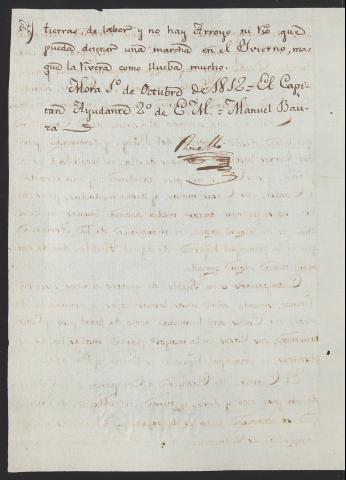 tierras de labor y no hay Arroyo ni Rio que
pueda detener una marcha en el Ivierno, mas
que la rivera como llueba mucho.
Mora 1º de Octubre de 1812 = El Capi-
tan Ayudante 2º de E. M. = Manuel Bau-
za